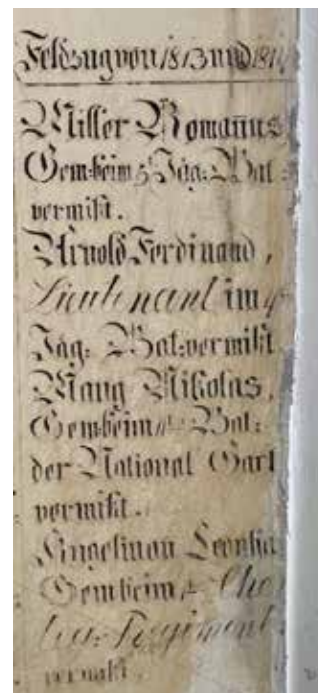 Feldzug von 1813 und 1814
Miller Romanus
Gemheim 5t Jäg: Bat:
vermißt.
Arnold Ferdinand,
Lieutenant im 4t
Jäg: Bat: vermißt
Mang Nikolas,
Gemheim Bat:
der National Gart
vermißt.
Gemheim Che
Regiment
vermißt.